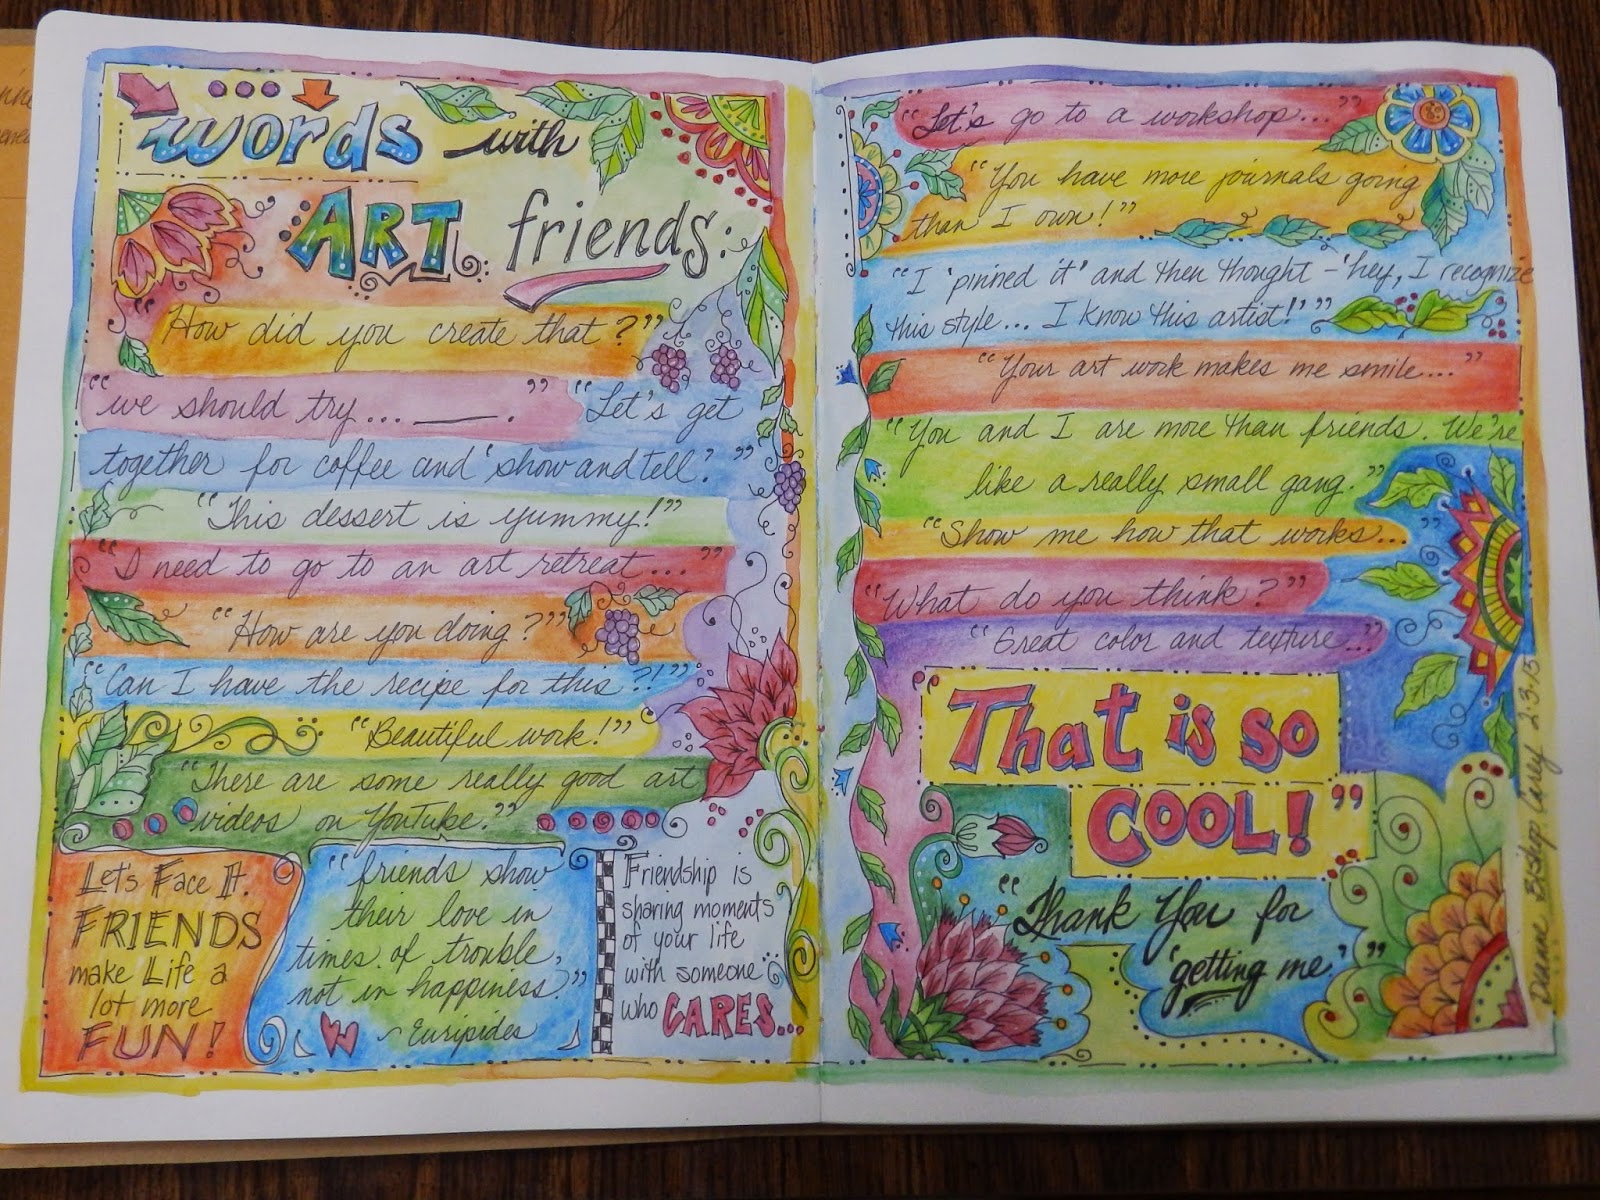 words with
ART friends:
"How did you create that?"
"we should try... ____." "Let's get
together for coffee and 'show and tell.' "
"This dessert is yummy!"
"I need to go to an art retreat..."
"How are you doing?"
"Can I have the recipe for this?!"
"Beautiful work!"
"There are some really good art
videos on YouTube."
Let's Face It.
FRIENDS
make Life a
lot more
FUN!
"friends show
their love in
times of trouble,
not in happiness."
~Euripides
Friendship is
sharing moments
of your life
with someone
who CARES...
"Let's go to a workshop..."
"You have more journals going
than I own!"
"I 'pinned it' and then thought - 'hey, I recognize
this style... I know this artist!' "
"Your art work makes me smile..."
"You and I are more than friends. We're
like a really small gang."
"Show me how that works..."
"What do you think?"
"Great color and texture..."
"That is so
COOL!"
"Thank You for
'getting me.' "
Dianne Bishop Carey 2.3.15